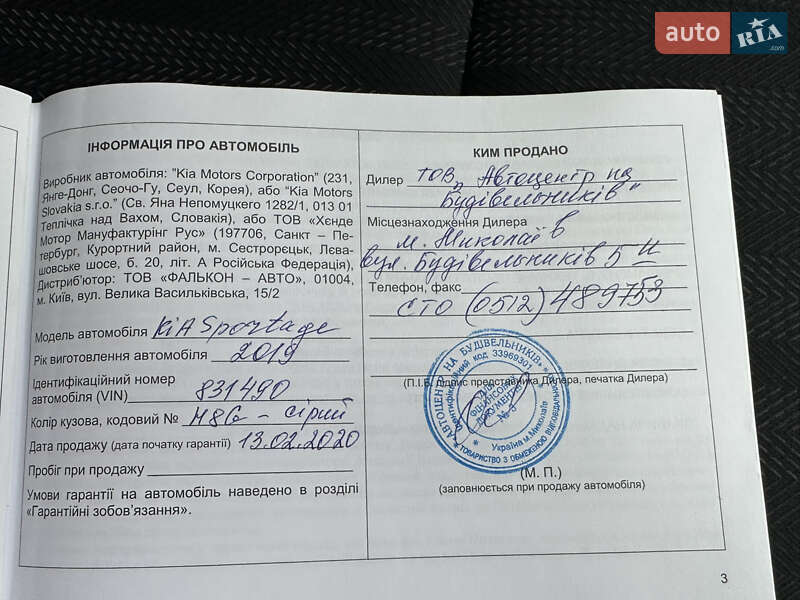 auto RIA.com
ІНФОРМАЦІЯ ПРО АВТОМОБІЛЬ
Виробник автомобіля: "Kia Motors Corporation" (231,
Янге-Донг, Сеочо-Гу, Сеул, Корея), або "Kia Motors
Slovakia s.r.o." (Св. Яна Непомуцкего 1282/1, 013 01
Теплічка над Вахом, Словакія), або ТОВ «Хєнде
Мотор Мануфактурінг Рус» (197706, Санкт – Пе-
тербург, Курортний район, м. Сестрорєцьк, Лєва-
шовське шосе, б. 20, літ. А Російська Федерація),
Дистриб'ютор: ТОВ «ФАЛЬКОН – АВТО», 01004,
м. Київ, вул. Велика Васильківська, 15/2
Модель автомобіля KiA Sportage
Рік виготовлення автомобіля 2019
Ідентифікаційний номер
автомобіля (VIN) 831490
Колір кузова, кодовий № H8G – сірий
Дата продажу (дата початку гарантії) 13.02.2020
Пробіг при продажу
Умови гарантії на автомобіль наведено в розділі
«Гарантійні зобов'язання».
КИМ ПРОДАНО
Дилер ТОВ „Автоцентр на
Будівельників"
Місцезнаходження Дилера
м. Миколаїв
вул. Будівельників 5
Телефон, факс
СТО (0512) 489753
(П.І.Б. підпис представника Дилера, печатка Дилера)
АВТОЦЕНТР НА БУДІВЕЛЬНИКІВ
Ідентифікаційний код 33969301
ДЛЯ
ФІНАНСОВИХ
ДОКУМЕНТІВ
№ 3
Україна м.Миколаїв
ТОВАРИСТВО З ОБМЕЖЕНОЮ ВІДПОВІДАЛЬНІСТЮ
(М. П.)
(заповнюється при продажу автомобіля)
3